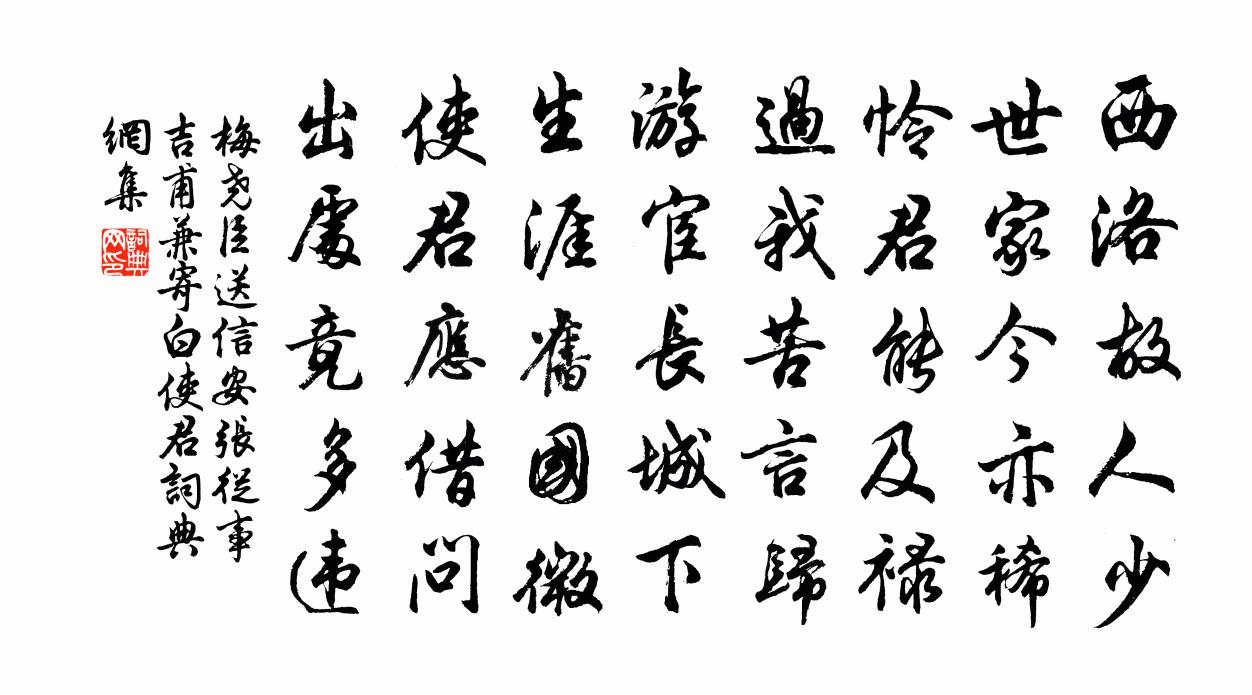 西洛故人少
世家今亦稀
怜君能及禄
過我苦言歸
游宦長城下
生涯舊國微
使君應借問
出處竟多违
梅尧臣送信安張從事
吉甫兼寄白使君詞典
網集
詞典
网印